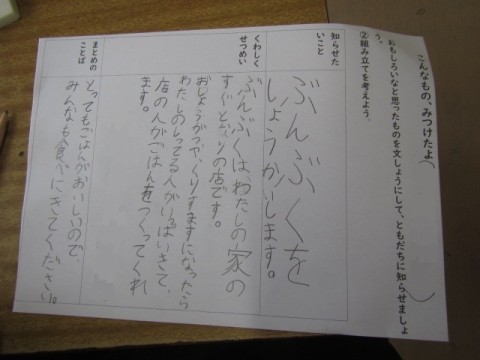 こんなもの、みつけたよ( )
おもしろいなと思ったものを文しょうにして、ともだちに知らせましょう。
②組み立てを考えよう。
知らせたいこと
ぶんぶくを
しょうかいします。
くわしくせつめい
ぶんぶくは、わたしの家の
すぐとなりの店です。
おしょうがつや、くりすますになったら
わたしのしってる人がいっぱいきて、
店の人がごはんをつくってくれ
ます。
まとめのことば
とってもごはんがおいしいので、
みんなも食べにきてください。